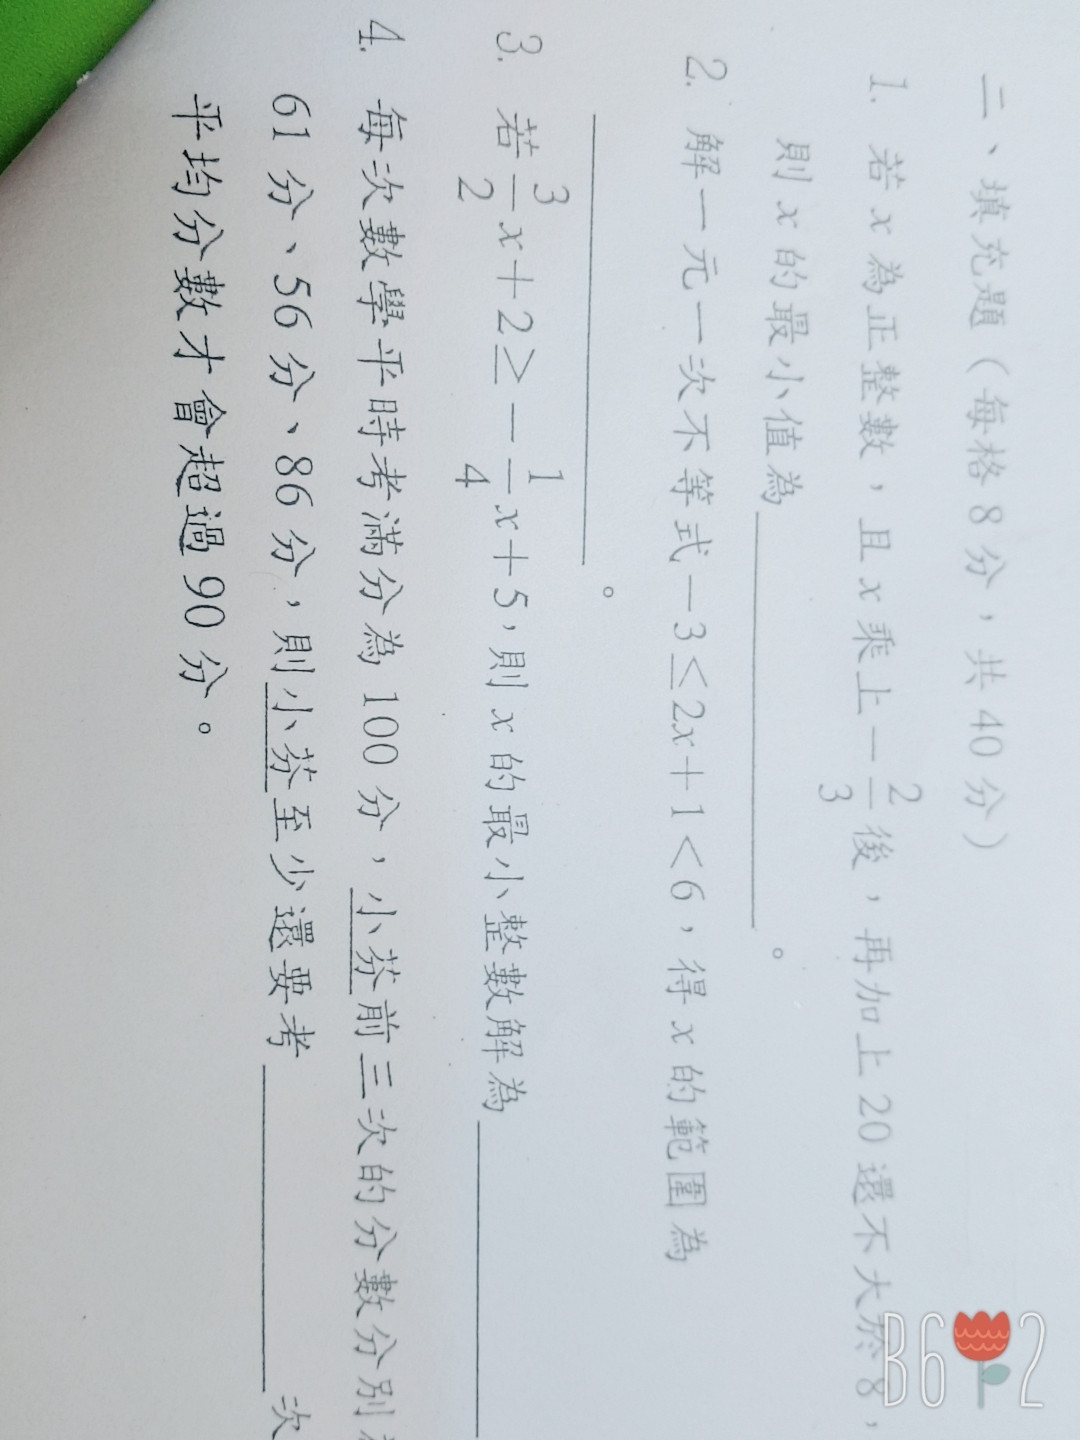 二、填充題（每格8分，共40分）
1. 若 x 為正整數，且 x 乘上 −2/3 後，再加上 20 還不大於 8，
則 x 的最小值為＿＿＿＿＿＿。
2. 解一元一次不等式 −3≤2x＋1＜6，得 x 的範圍為
＿＿＿＿＿＿。
3. 若 3/2 x＋2≥−1/4 x＋5，則 x 的最小整數解為＿＿＿＿＿＿
4. 每次數學平時考滿分為 100 分，小芬前三次的分數分別
61 分、56 分、86 分，則小芬至少還要考＿＿＿＿＿＿次
平均分數才會超過 90 分。
B612